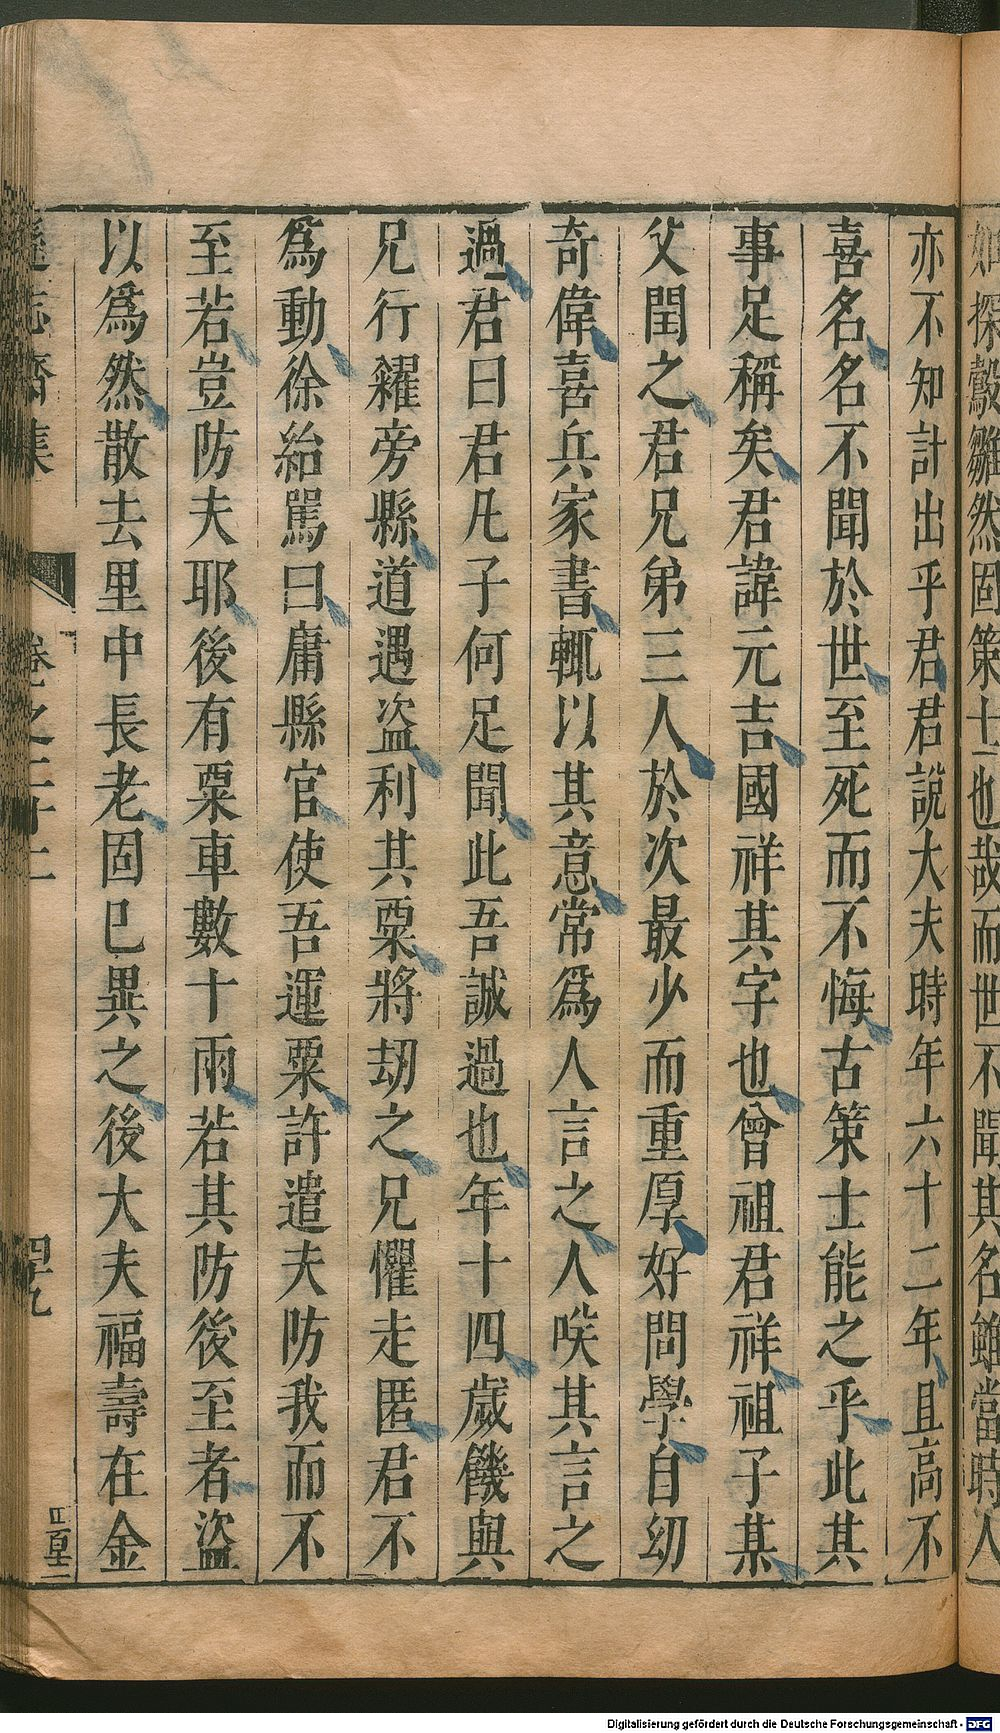 如探鷇雛然固策士也哉而世不聞其名雖當時人
亦不知計出乎君君說大夫時年六十二年且高不
喜名名不聞於世至死而不悔古策士能之乎此其
事足稱矣君諱元吉國祥其字也曾祖君祥祖子某
父閏之君兄弟三人於次最少而重厚好問學自幼
奇偉喜兵家書輒以其意常爲人言之人唉其言之
過君曰君凡子何足聞此吾誠過也年十四歲饑與
兄行糴旁縣道遇盜利其粟將劫之兄懼走匿君不
爲動徐紿罵曰庸縣官使吾運粟許遣夫防我而不
至若豈防夫耶後有粟車數十兩若其防後至者盜
以爲然散去里中長老固已異之後大夫福壽在金
遜志齋集
卷之二十二
四十九
Digitalisierung gefördert durch die Deutsche Forschungsgemeinschaft - DFG